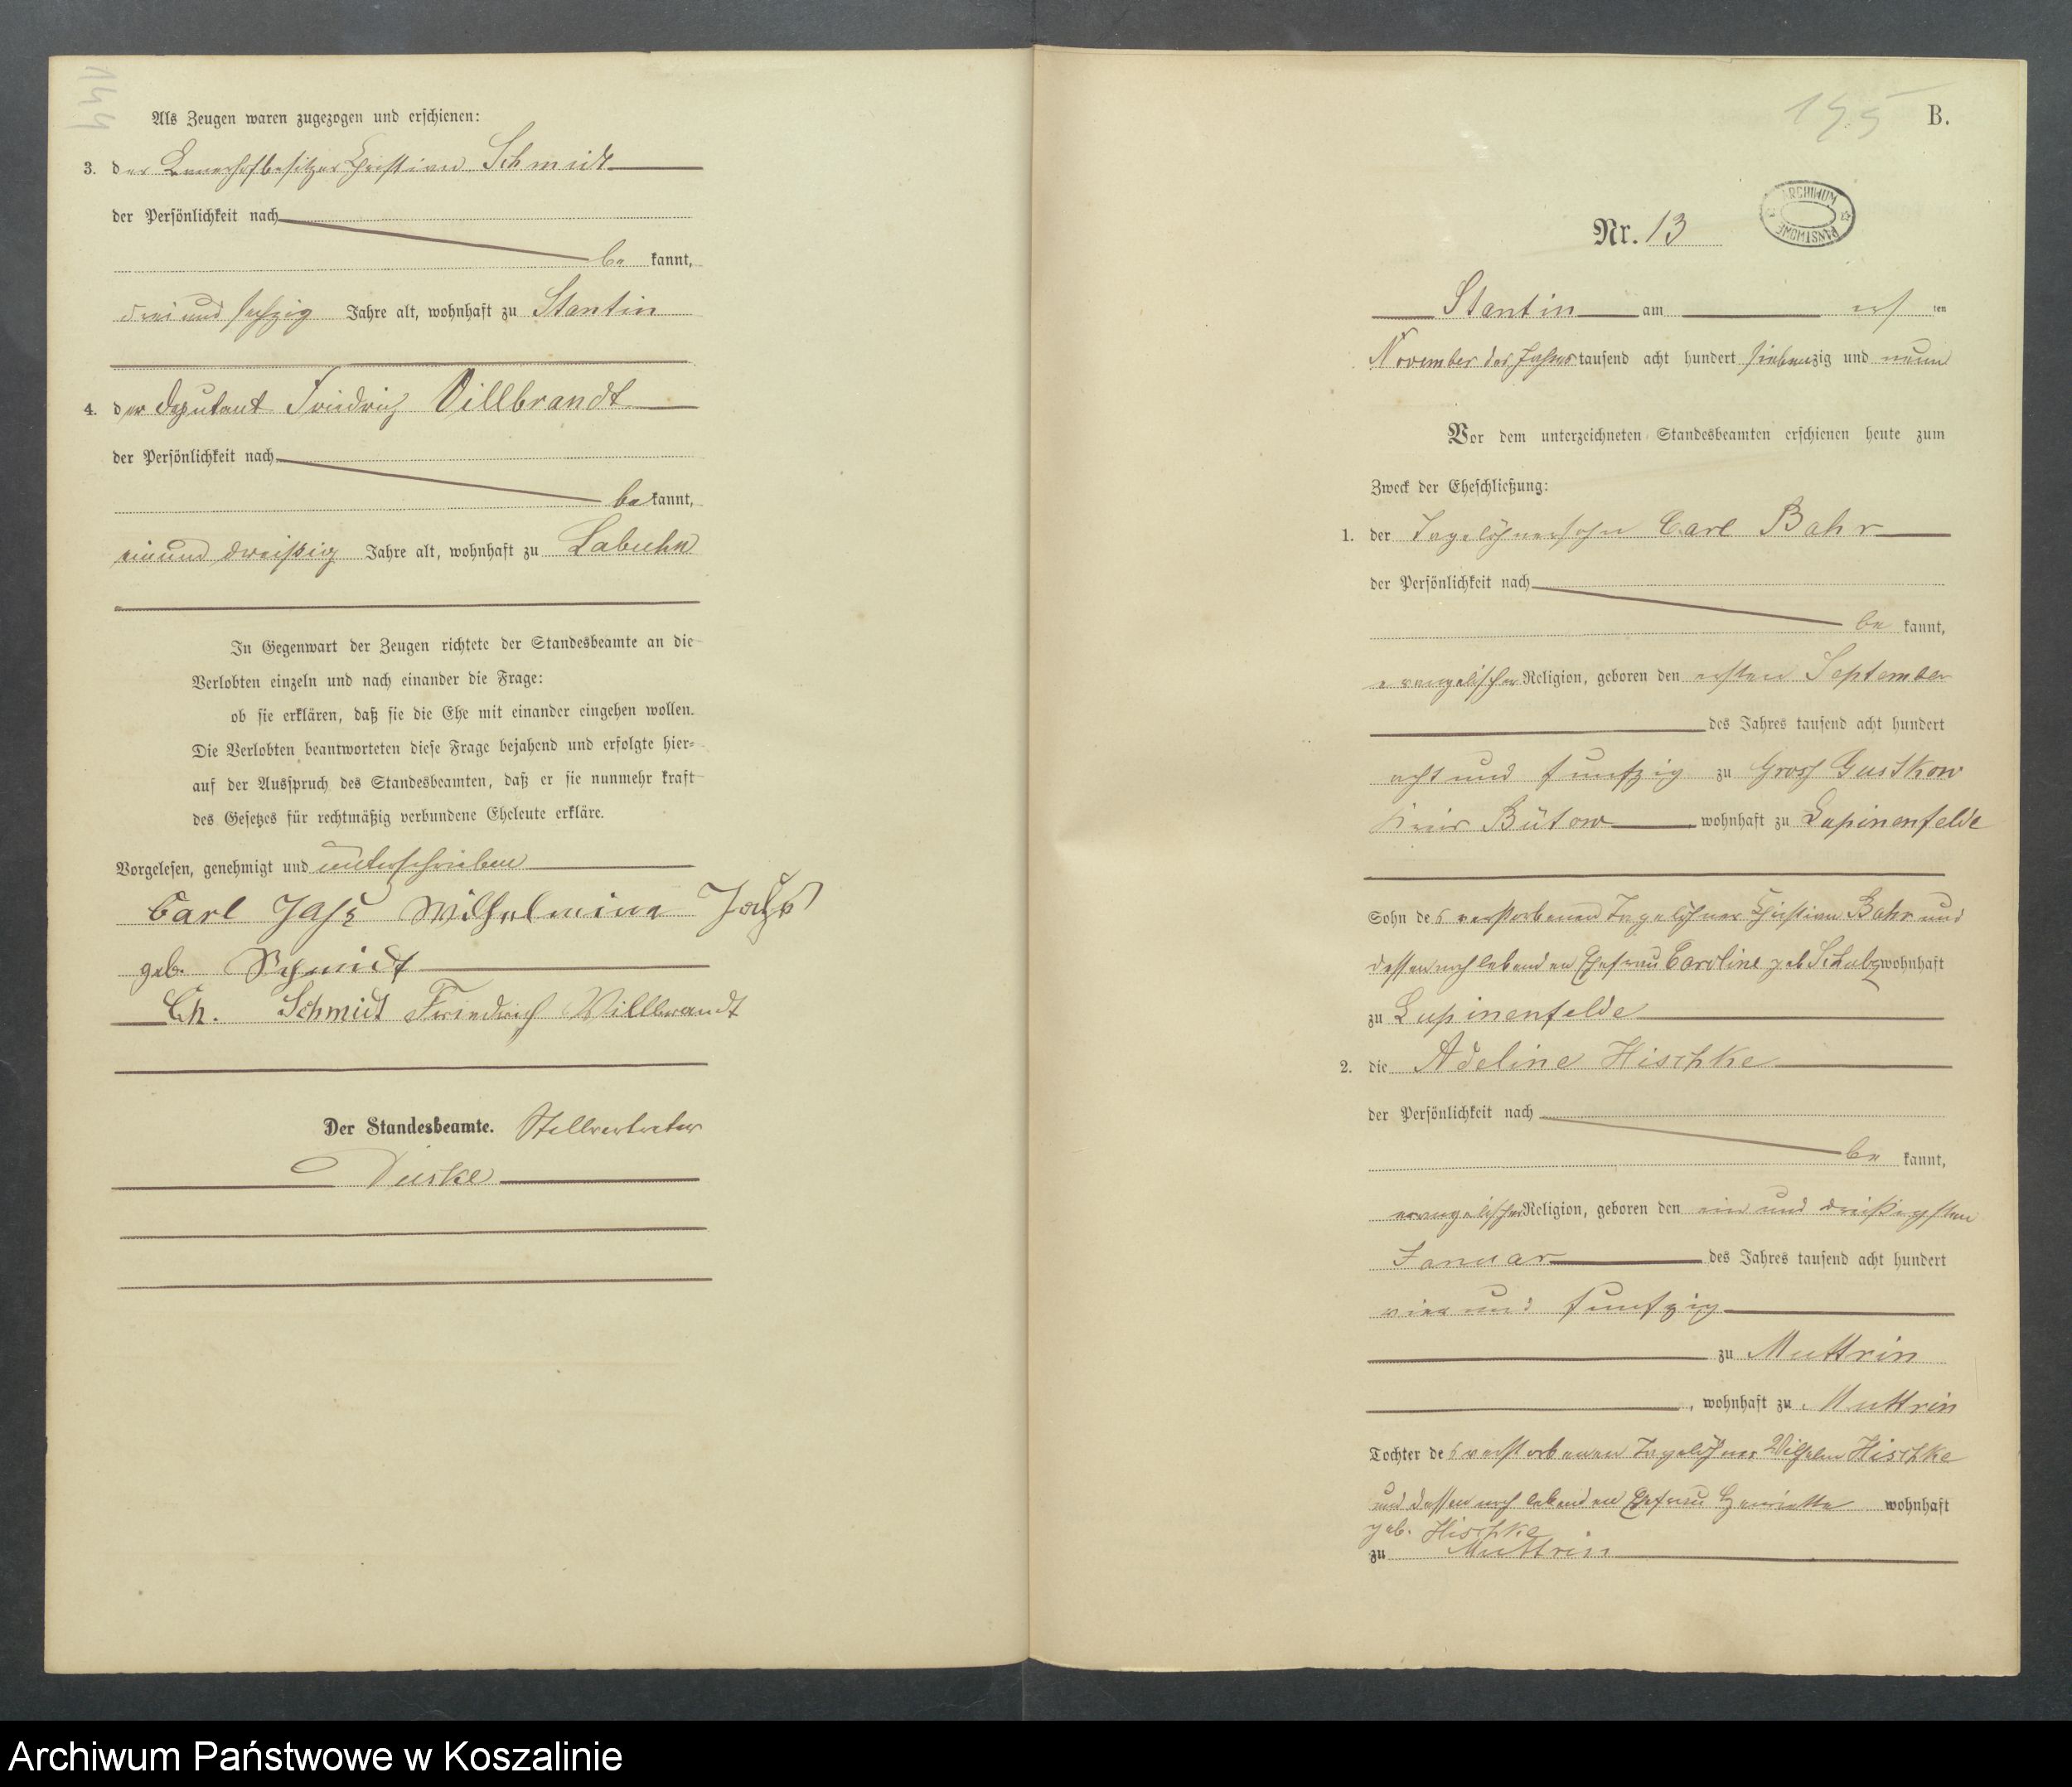 144
Als Zeugen waren zugezogen und erschienen:
3. der Bauerhofbesitzer Christian Schmidt
der Persönlichkeit nach
be kannt,
drei und sechzig Jahre alt, wohnhaft zu Stantin
4. der Deputant Friedrich Villbrandt
der Persönlichkeit nach
be kannt,
einund dreißig Jahre alt, wohnhaft zu Labuhn
In Gegenwart der Zeugen richtete der Standesbeamte an die
Verlobten einzeln und nach einander die Frage:
ob sie erklären, daß sie die Ehe mit einander eingehen wollen.
Die Verlobten beantworteten diese Frage bejahend und erfolgte hier-
auf der Ausspruch des Standesbeamten, daß er sie nunmehr kraft
des Gesetzes für rechtmäßig verbundene Eheleute erkläre.
Vorgelesen, genehmigt und unterschrieben
Carl Wilhelmine
geb. Schmidt
Ch. Schmidt Friedrich Villbrandt
Der Standesbeamte. Stellvertreter
B.
ARCHIWUM PAŃSTWOWE
Nr. 13
Stantin am ten
November des Jahres tausend acht hundert siebenzig und neun
Vor dem unterzeichneten Standesbeamten erschienen heute zum
Zweck der Eheschließung:
1. der Tagelöhnersohn Carl Bahr
der Persönlichkeit nach
be kannt,
evangelischer Religion, geboren den ersten September
des Jahres tausend acht hundert
acht und funfzig zu Gross Gustkow
Kreis Bütow wohnhaft zu Lupinenfelde
Sohn des verstorbenen Tagelöhner Christian Bahr und
dessen noch lebenden Ehefrau Caroline geb Schulz wohnhaft
zu Lupinenfelde
2. die Adeline Hischke
der Persönlichkeit nach
be kannt,
evangelischer Religion, geboren den ein und dreißigsten
Januar des Jahres tausend acht hundert
vier und funfzig
zu Muttrin
, wohnhaft zu Muttrin
Tochter des verstorbenen Tagelöhner Wilhelm Hischke
und dessen noch lebenden Ehefrau Henriette wohnhaft
geb. Hischke
zu Muttrin
Archiwum Państwowe w Koszalinie